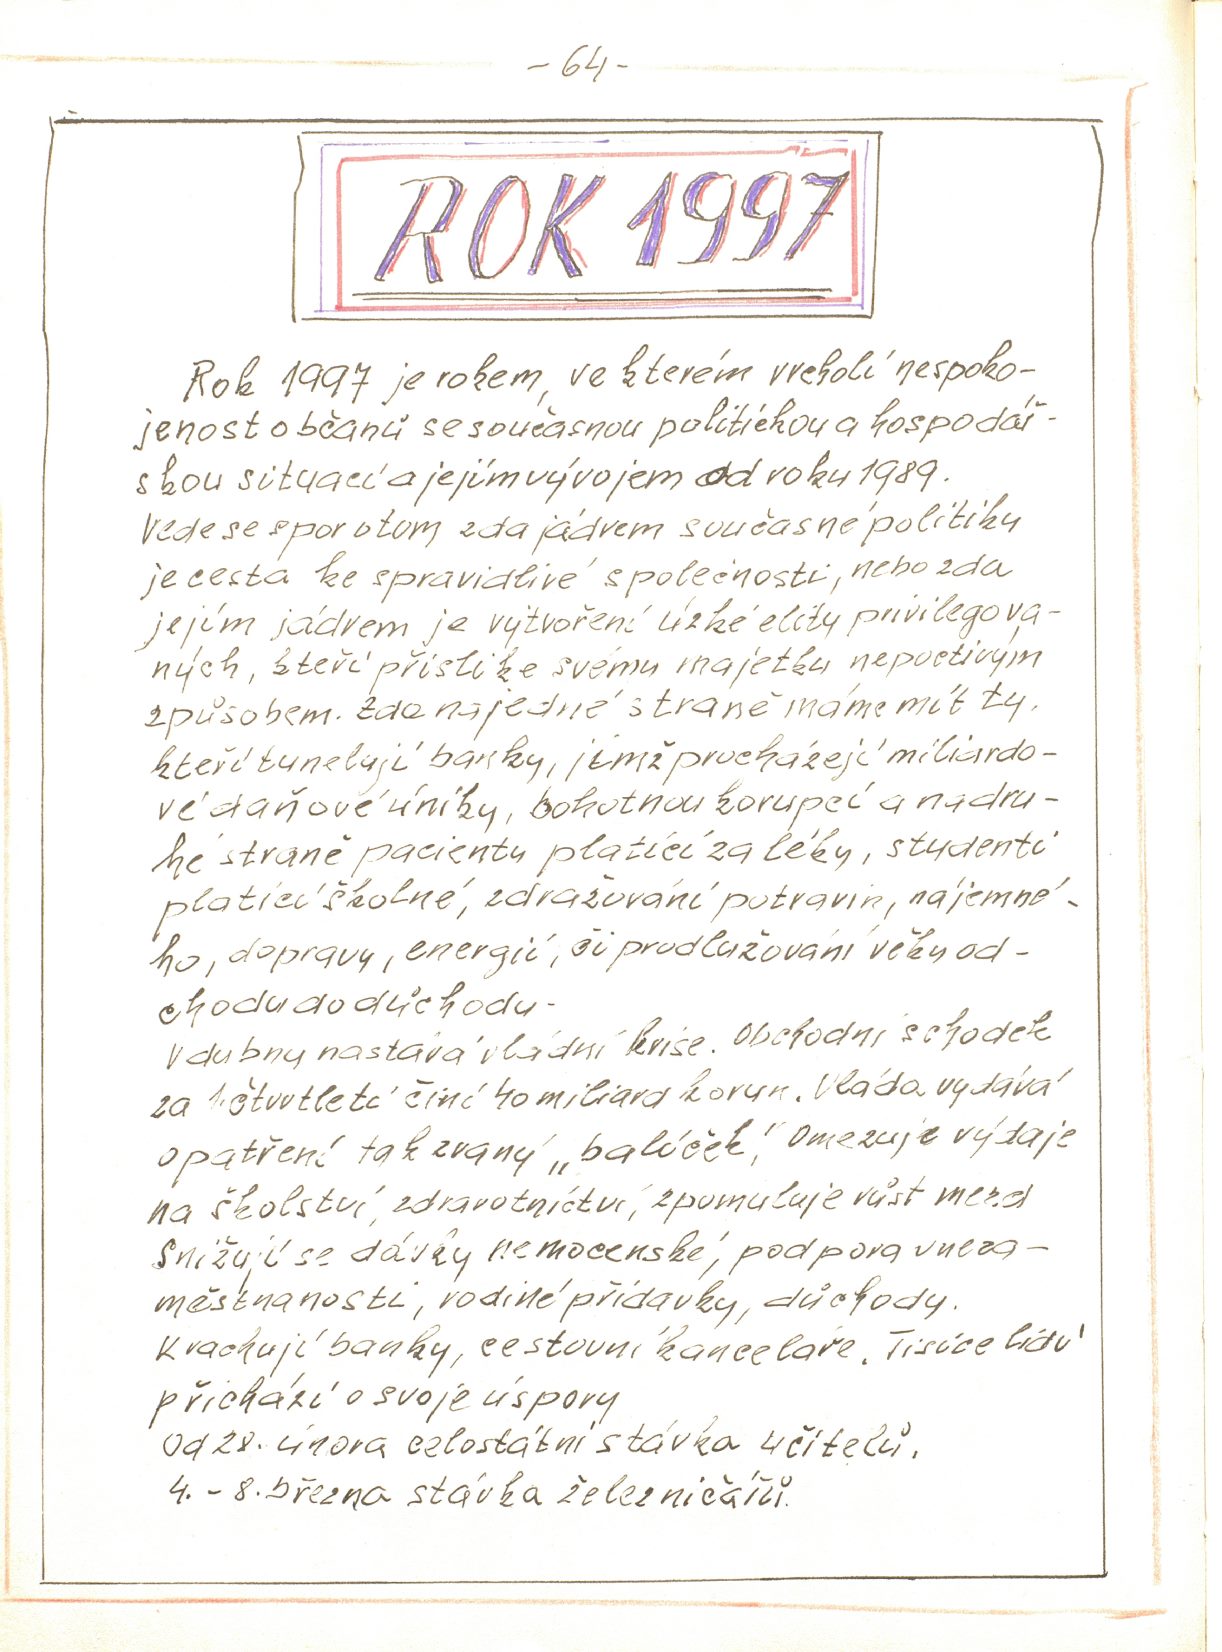 - 64 -
ROK 1997
Rok 1997 je rokem, ve kterém vrcholí nespoko-
jenost občanů se současnou politickou a hospodář-
skou situací a jejím vývojem od roku 1989.
Vede se spor o tom zda jádrem současné politiky
je cesta ke spravidlivé společnosti, nebo zda
jejím jádrem je vytvoření úzké elity privilegova-
ných, kteří přišli ke svému majetku nepoctivým
způsobem. Zda na jedné straně máme mít ty,
kteří tunelují banky, jimž procházejí miliardo-
vé daňové úniky, bohotnou korupcí a na dru-
hé straně pacienty platící za léky, studenti
platící školné, zdražování potravin, nájemné-
ho, dopravy, energií, či prodlužování věku od-
chodu do důchodu.
V dubnu nastává vládní krise. Obchodní schodek
za 1. čtvrtletí činí 40 miliard korun. Vláda vydává
opatření tak zvaný „balíček". Omezuje výdaje
na školství, zdravotnictví, zpomaluje růst mezd
Snižují se dávky nemocenské, podpora v neza-
městnanosti, rodiné přídavky, důchody.
Krachují banky, cestovní kanceláře. Tisíce lidí
přichází o svoje úspory
Od 28. února celostátní stávka učitelů.
4. - 8. března stávka železničářů.